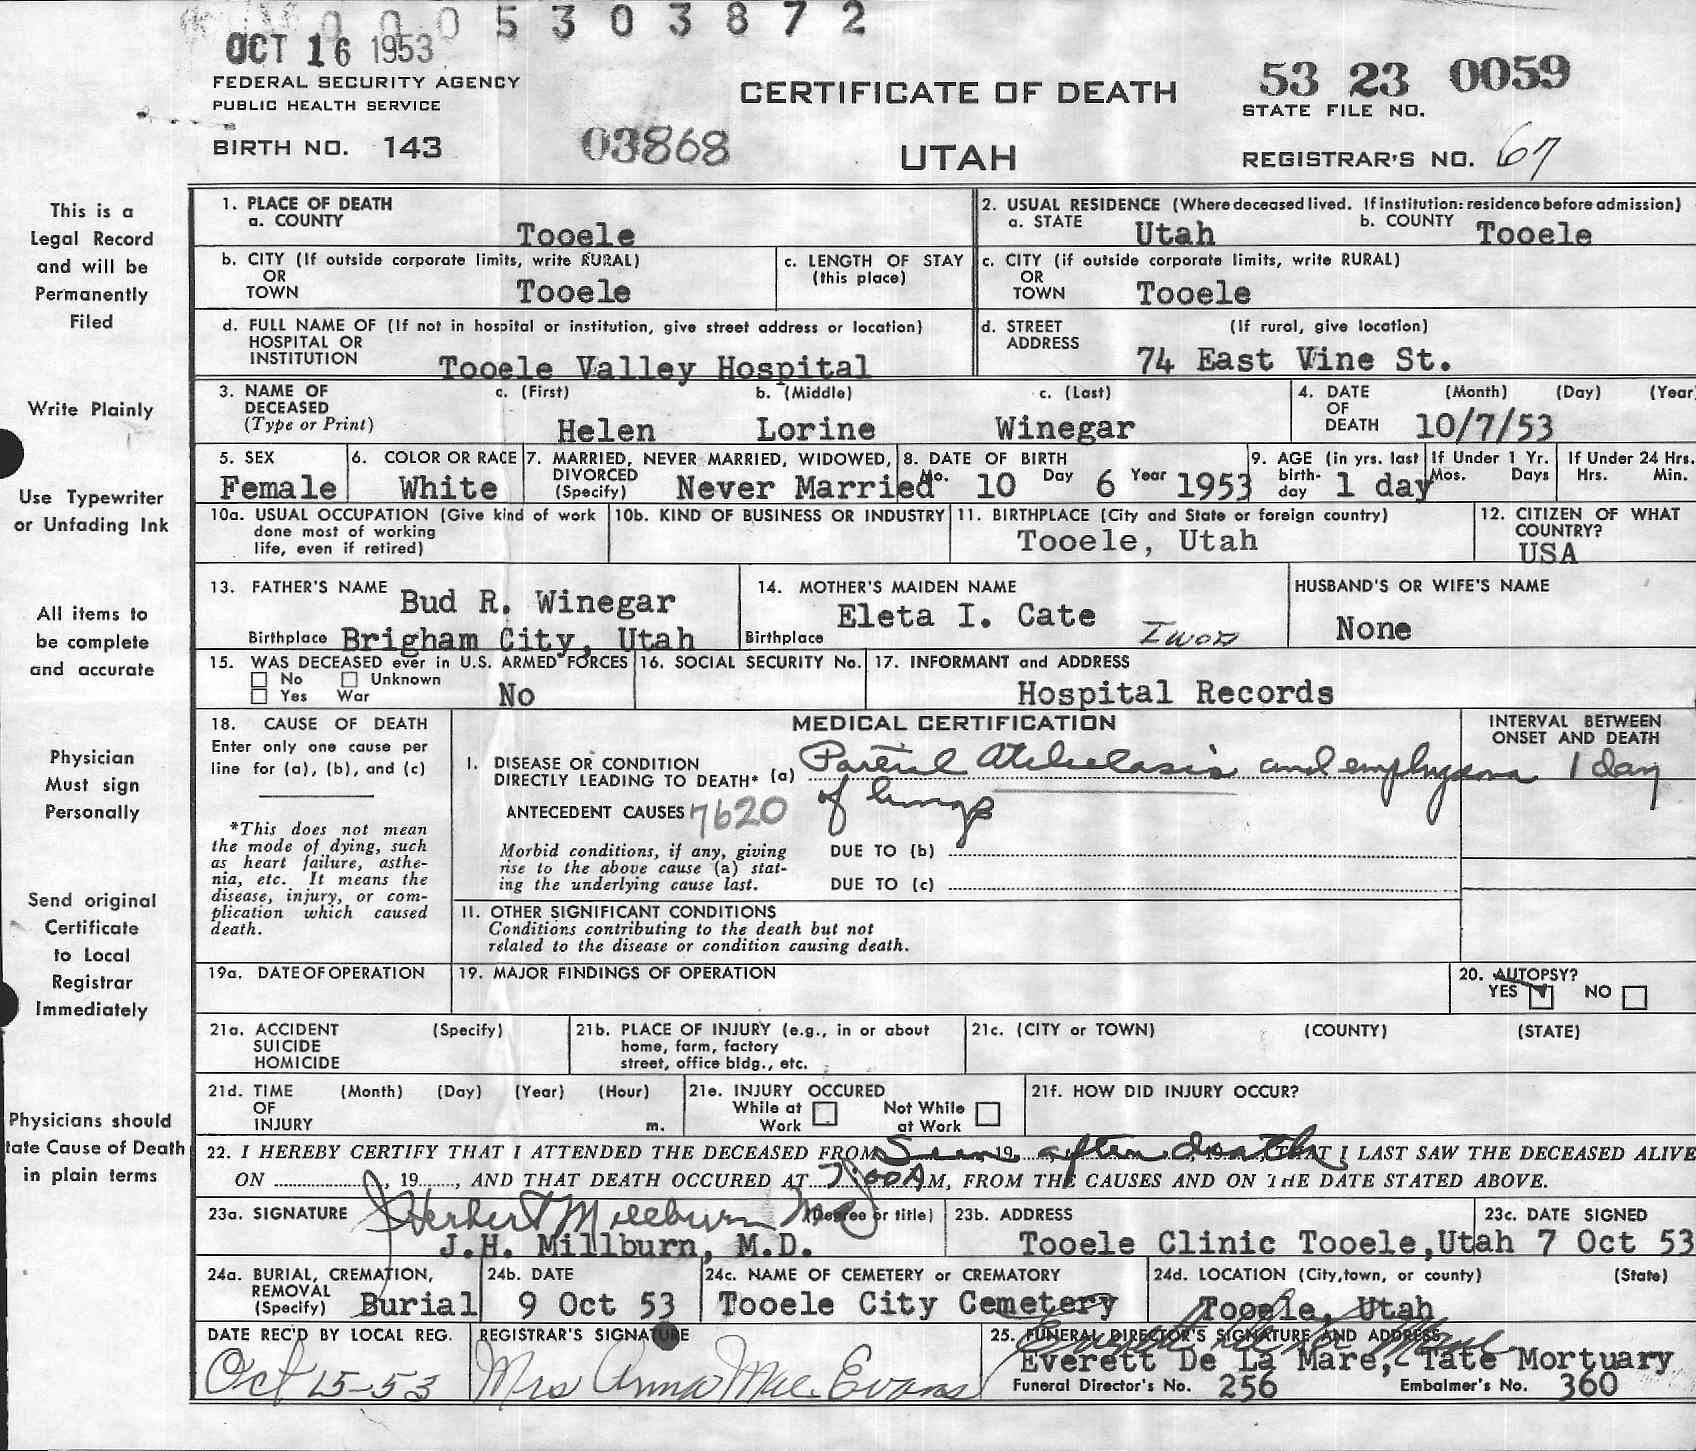 0005303872
OCT 16 1953
FEDERAL SECURITY AGENCY
PUBLIC HEALTH SERVICE
BIRTH NO. 143
03868
CERTIFICATE OF DEATH
UTAH
53 23 0059
STATE FILE NO.
REGISTRAR'S NO. 67
This is a
Legal Record
and will be
Permanently
Filed
Write Plainly
Use Typewriter
or Unfading Ink
All items to
be complete
and accurate
Physician
Must sign
Personally
Send original
Certificate
to Local
Registrar
Immediately
Physicians should
tate Cause of Death
in plain terms
1. PLACE OF DEATH
a. COUNTY Tooele
2. USUAL RESIDENCE (Where deceased lived. If institution: residence before admission)
a. STATE Utah b. COUNTY Tooele
b. CITY (If outside corporate limits, write RURAL)
OR
TOWN Tooele
c. LENGTH OF STAY
(this place)
c. CITY (if outside corporate limits, write RURAL)
OR
TOWN Tooele
d. FULL NAME OF (If not in hospital or institution, give street address or location)
HOSPITAL OR
INSTITUTION Tooele Valley Hospital
d. STREET (If rural, give location)
ADDRESS 74 East Vine St.
3. NAME OF a. (First) b. (Middle) c. (Last)
DECEASED
(Type or Print) Helen Lorine Winegar
4. DATE (Month) (Day) (Year
OF
DEATH 10/7/53
5. SEX
Female
6. COLOR OR RACE
White
7. MARRIED, NEVER MARRIED, WIDOWED,
DIVORCED
(Specify) Never Married
8. DATE OF BIRTH
Mo. 10 Day 6 Year 1953
9. AGE (in yrs. last
birth-
day 1 day
If Under 1 Yr.
Mos. Days
If Under 24 Hrs.
Hrs. Min.
10a. USUAL OCCUPATION (Give kind of work
done most of working
life, even if retired)
10b. KIND OF BUSINESS OR INDUSTRY
11. BIRTHPLACE (City and State or foreign country)
Tooele, Utah
12. CITIZEN OF WHAT
COUNTRY?
USA
13. FATHER'S NAME Bud R. Winegar
Birthplace Brigham City, Utah
14. MOTHER'S MAIDEN NAME
Eleta I. Cate
Birthplace
HUSBAND'S OR WIFE'S NAME
None
15. WAS DECEASED ever in U.S. ARMED FORCES
No Unknown
Yes War No
16. SOCIAL SECURITY No.
17. INFORMANT and ADDRESS
Hospital Records
18. CAUSE OF DEATH
Enter only one cause per
line for (a), (b), and (c)
*This does not mean
the mode of dying, such
as heart failure, asthe-
nia, etc. It means the
disease, injury, or com-
plication which caused
death.
MEDICAL CERTIFICATION
I. DISEASE OR CONDITION
DIRECTLY LEADING TO DEATH* (a) Partial Atelectasis and emphysema
of lungs
ANTECEDENT CAUSES 7620
Morbid conditions, if any, giving
rise to the above cause (a) stat-
ing the underlying cause last.
DUE TO (b)
DUE TO (c)
INTERVAL BETWEEN
ONSET AND DEATH
1 day
II. OTHER SIGNIFICANT CONDITIONS
Conditions contributing to the death but not
related to the disease or condition causing death.
19a. DATE OF OPERATION
19. MAJOR FINDINGS OF OPERATION
20. AUTOPSY?
YES NO
21a. ACCIDENT (Specify)
SUICIDE
HOMICIDE
21b. PLACE OF INJURY (e.g., in or about
home, farm, factory
street, office bldg., etc.
21c. (CITY or TOWN) (COUNTY) (STATE)
21d. TIME (Month) (Day) (Year) (Hour)
OF
INJURY m.
21e. INJURY OCCURED
While at Not While
Work at Work
21f. HOW DID INJURY OCCUR?
22. I HEREBY CERTIFY THAT I ATTENDED THE DECEASED FROM Seen 19 after death, 19 , THAT I LAST SAW THE DECEASED ALIVE
ON , 19 , AND THAT DEATH OCCURED AT 7:00A M, FROM THE CAUSES AND ON THE DATE STATED ABOVE.
23a. SIGNATURE J Herbert Millburn MD (Degree or title)
J.H. Millburn, M.D.
23b. ADDRESS
Tooele Clinic Tooele,Utah
23c. DATE SIGNED
7 Oct 53
24a. BURIAL, CREMATION,
REMOVAL
(Specify) Burial
24b. DATE
9 Oct 53
24c. NAME OF CEMETERY or CREMATORY
Tooele City Cemetery
24d. LOCATION (City,town, or county) (State)
Tooele, Utah
DATE REC'D BY LOCAL REG.
Oct 15-53
REGISTRAR'S SIGNATURE
Mrs Anna Mae Evans
25. FUNERAL DIRECTOR'S SIGNATURE AND ADDRESS
Everett De La Mare,- Tate Mortuary
Funeral Director's No. 256 Embalmer's No. 360